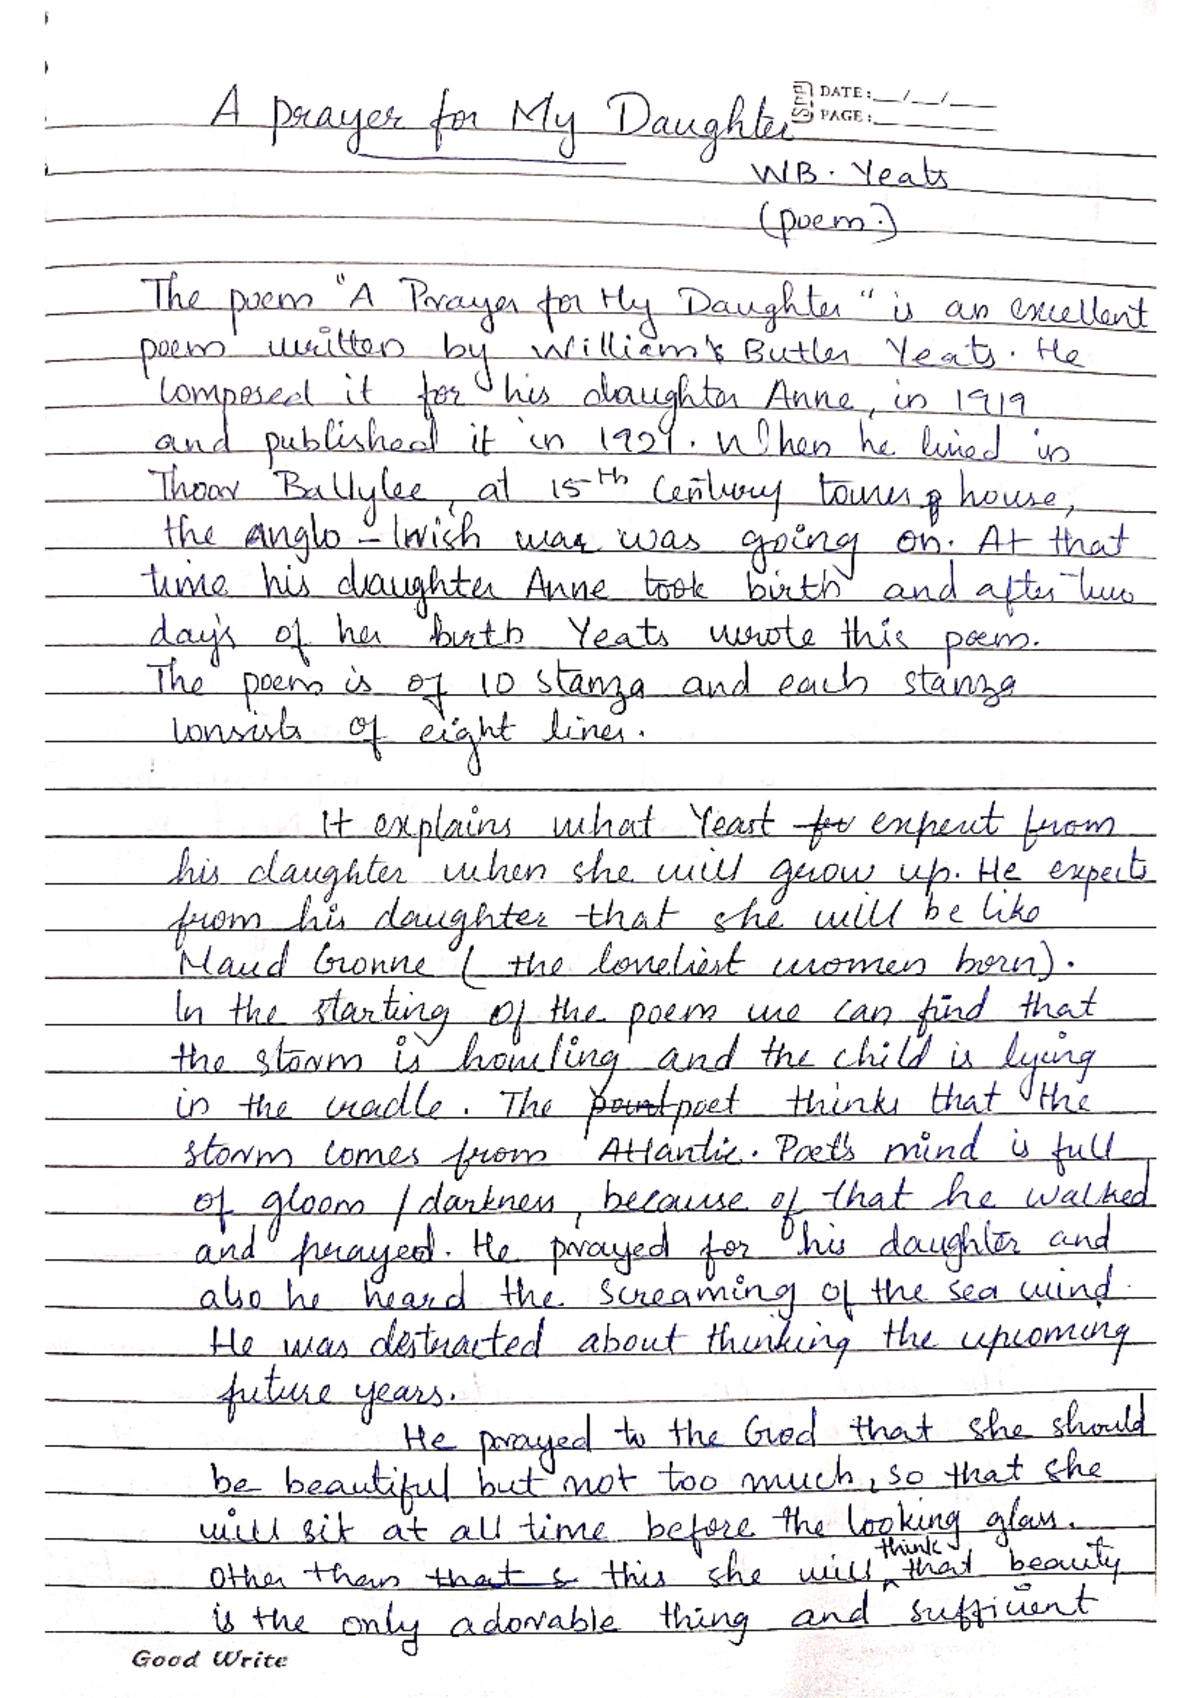 A prayer for My Daughter
DATE: __/__/___
PAGE: ______
WB. Yeats
(poem.)
The poem "A Prayer for My Daughter" is an excellent
poem written by William's Butler Yeats. He
composed it for his daughter Anne, in 1919
and published it in 1921. When he lived in
Thoor Ballylee, at 15th Century tower house,
the anglo-Irish war was going on. At that
time his daughter Anne took birth and after two
days of her birth Yeats wrote this poem.
The poem is of 10 stanza and each stanza
consists of eight lines.
It explains what Yeast for expect from
his daughter when she will grow up. He expects
from his daughter that she will be like
Maud Gronne (the loneliest women born).
In the starting of the poem we can find that
the storm is howling and the child is lying
in the cradle. The poet thinks that the
storm comes from Atlantic. Poet's mind is full
of gloom / darkness, because of that he walked
and prayed. He prayed for his daughter and
also he heard the screaming of the sea wind.
He was distracted about thinking the upcoming
future years.
He prayed to the God that she should
be beautiful but not too much, so that she
will sit at all time before the looking glass.
Other than that this she will think that beauty
is the only adorable thing and sufficient
Good Write